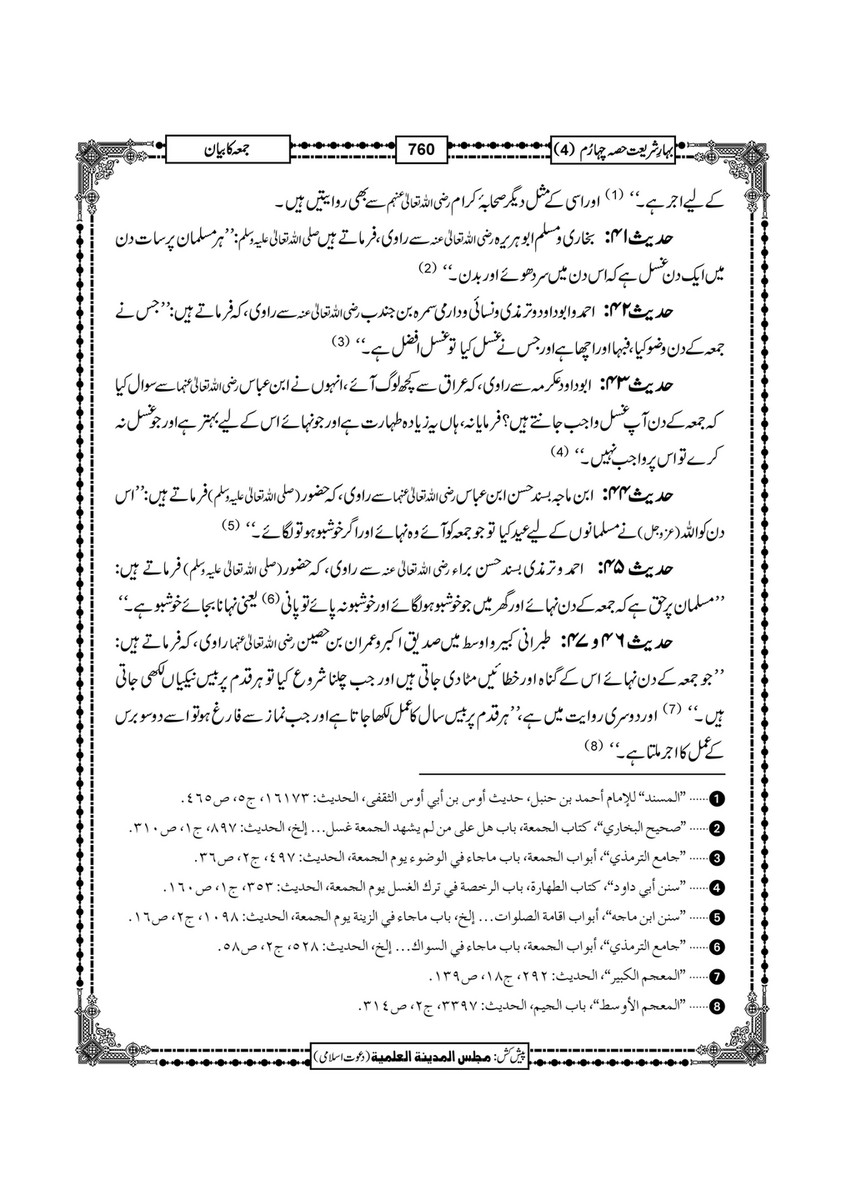 بہارِ شریعت حصہ چہارم (4)
760
جمعہ کا بیان
کے لیے اجر ہے۔‘‘ (1) اور اسی کے مثل دیگر صحابۂ کرام رضی اللہ تعالیٰ عنہم سے بھی روایتیں ہیں ۔
حدیث ۴۱: بخاری و مسلم ابوہریرہ رضی اللہ تعالیٰ عنہ سے راوی، فرماتے ہیں صلی اللہ تعالیٰ علیہ وسلم: ’’ہر مسلمان پر سات دن
میں ایک دن غسل ہے کہ اس دن میں سر دھوئے اور بدن ۔‘‘ (2)
حدیث ۴۲: احمد و ابوداود و ترمذی و نسائی و دارمی سمرہ بن جندب رضی اللہ تعالیٰ عنہ سے راوی، کہ فرماتے ہیں: ’’جس نے
جمعہ کے دن وضو کیا، فبہا اور اچھا ہے اور جس نے غسل کیا تو غسل افضل ہے۔‘‘ (3)
حدیث ۴۳: ابوداود عکرمہ سے راوی، کہ عراق سے کچھ لوگ آئے ، انہوں نے ابن عباس رضی اللہ تعالیٰ عنہما سے سوال کیا
کہ جمعہ کے دن آپ غسل واجب جانتے ہیں؟ فرمایا نہ، ہاں یہ زیادہ طہارت ہے اور جو نہائے اس کے لیے بہتر ہے اور جو غسل نہ
کرے تو اس پر واجب نہیں ۔‘‘ (4)
حدیث ۴۴: ابن ماجہ بسند حسن ابن عباس رضی اللہ تعالیٰ عنہما سے راوی، کہ حضور (صلی اللہ تعالیٰ علیہ وسلم) فرماتے ہیں: ’’اس
دن کو اللہ (عزوجل) نے مسلمانوں کے لیے عید کیا تو جو جمعہ کو آئے وہ نہائے اور اگر خوشبو ہو تو لگائے ۔‘‘ (5)
حدیث ۴۵: احمد و ترمذی بسند حسن براء رضی اللہ تعالیٰ عنہ سے راوی، کہ حضور (صلی اللہ تعالیٰ علیہ وسلم) فرماتے ہیں:
’’مسلمان پر حق ہے کہ جمعہ کے دن نہائے اور گھر میں جو خوشبو ہو لگائے اور خوشبو نہ پائے تو پانی (6) یعنی نہانا بجائے خوشبو ہے۔‘‘
حدیث ۴۶ و ۴۷: طبرانی کبیر و اوسط میں صدیق اکبر و عمران بن حصین رضی اللہ تعالیٰ عنہما راوی، کہ فرماتے ہیں:
’’جو جمعہ کے دن نہائے اس کے گناہ اور خطائیں مٹا دی جاتی ہیں اور جب چلنا شروع کیا تو ہر قدم پر بیس نیکیاں لکھی جاتی
ہیں۔‘‘ (7) اور دوسری روایت میں ہے، ’’ہر قدم پر بیس سال کا عمل لکھا جاتا ہے اور جب نماز سے فارغ ہو تو اسے دو سو برس
کے عمل کا اجر ملتا ہے۔‘‘ (8)
1...... ”المسند“ للإمام أحمد بن حنبل، حديث أوس بن أبي أوس الثقفى، الحديث: ١٦١٧٣، ج٥، ص٤٦٥.
2...... ”صحيح البخاري“، كتاب الجمعة، باب هل على من لم يشهد الجمعة غسل... إلخ، الحديث: ٨٩٧، ج١، ص٣١٠.
3...... ”جامع الترمذي“، أبواب الجمعة، باب ماجاء في الوضوء يوم الجمعة، الحديث: ٤٩٧، ج٢، ص٣٦.
4...... ”سنن أبي داود“، كتاب الطهارة، باب الرخصة في ترك الغسل يوم الجمعة، الحديث: ٣٥٣، ج١، ص١٦٠.
5...... ”سنن ابن ماجه“، أبواب اقامة الصلوات... إلخ، باب ماجاء في الزينة يوم الجمعة، الحديث: ١٠٩٨، ج٢، ص١٦.
6...... ”جامع الترمذي“، أبواب الجمعة، باب ماجاء في السواك... إلخ، الحديث: ٥٢٨، ج٢، ص٥٨.
7...... ”المعجم الكبير“، الحديث: ٢٩٢، ج١٨، ص١٣٩.
8...... ”المعجم الأوسط“، باب الجيم، الحديث: ٣٣٩٧، ج٢، ص٣١٤.
پیش کش: مجلس المدینة العلمیة (دعوت اسلامی)